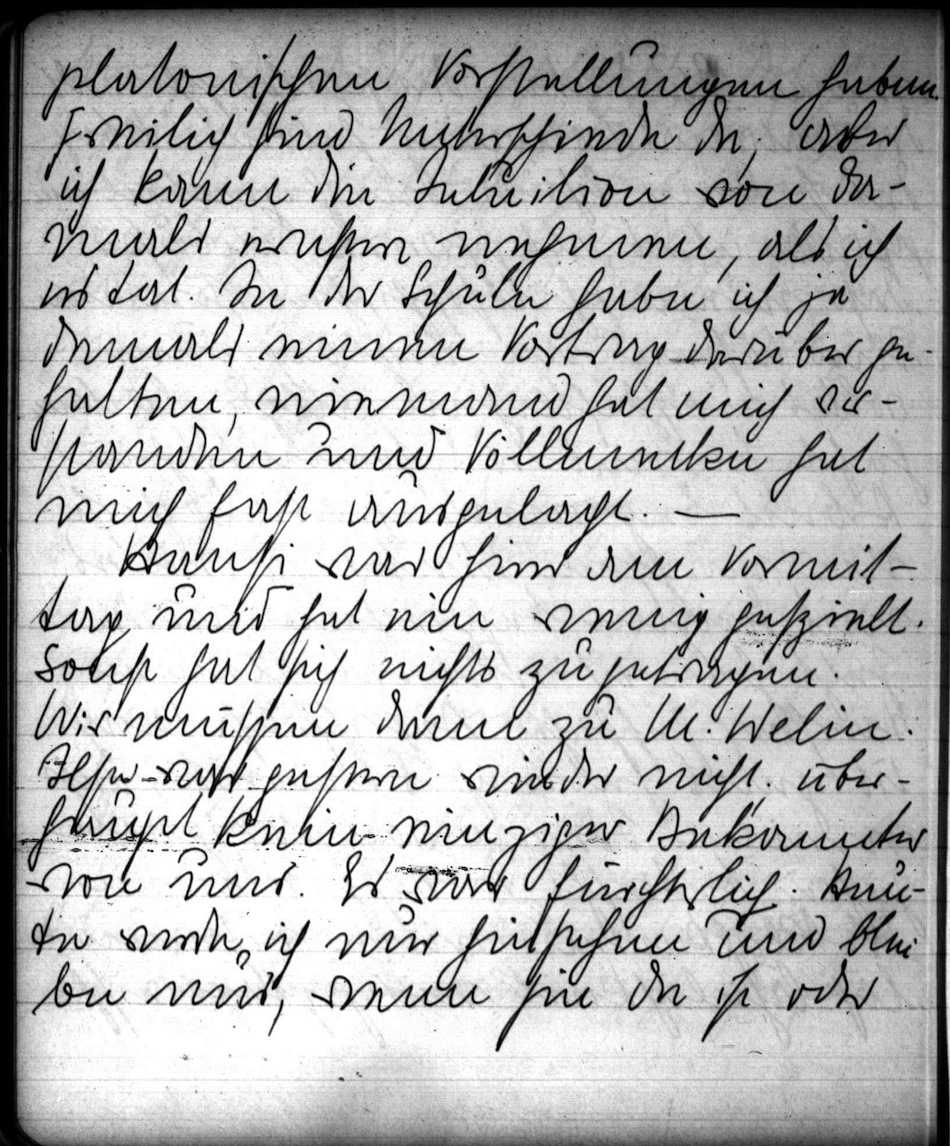 platonischen Vorstellungen haben.
Freilich sind Unterschiede da, aber
ich kann die Intuition von da-
mals ernster nehmen, als ich
es tat. In der Schule habe ich ja
damals einen Vortrag darüber ge-
halten, niemand hat mich ver-
standen und hat
mich fast ausgelacht. —
Hansi war hier am Vormit-
tag und hat ein wenig gespielt.
Sonst hat sich nichts zugetragen.
Wir müssen dann zu M. Welin.
Ilse war gestern wieder nicht. über-
haupt kein einziger Bekannter
von uns. Es war fürchterlich. Heu-
te werde ich nur hinsehen und blei
be nur, wenn sie da ist oder